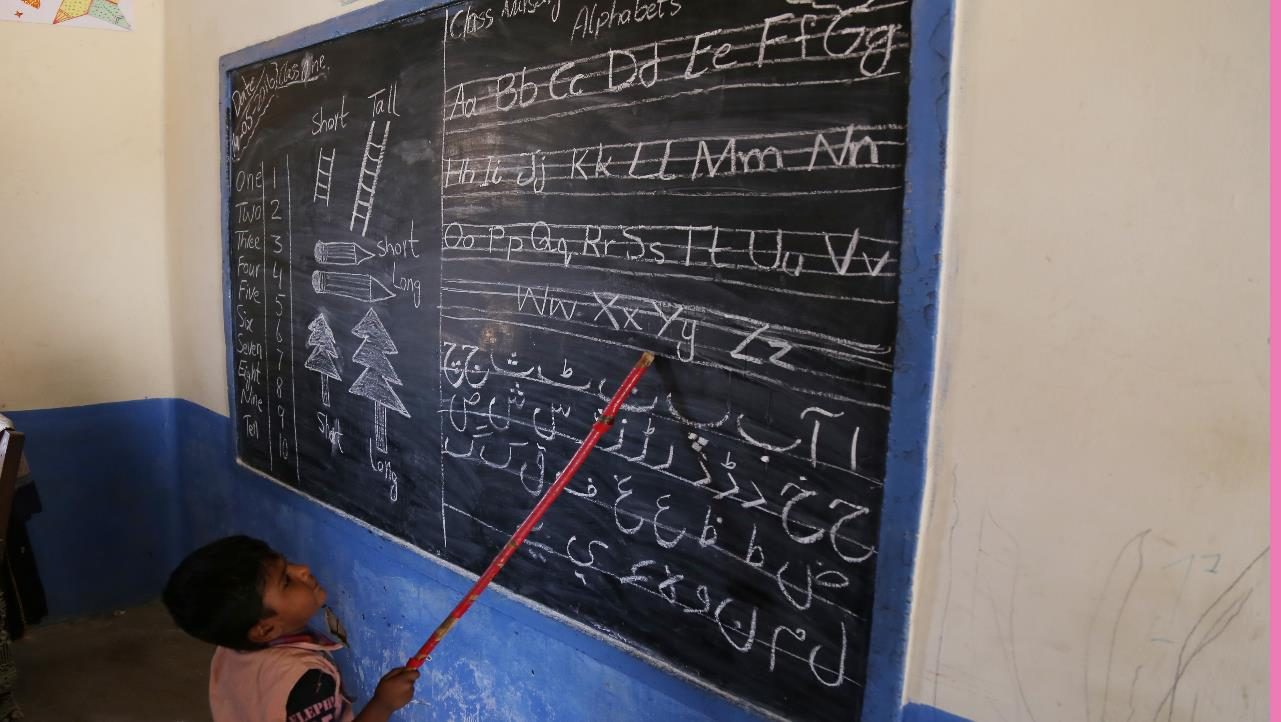 Date
Class One
Short Tall
One 1
Two 2
Three 3
Four 4
Five 5
Six 6
Seven 7
Eight 8
Nine 9
Ten 10
short
Long
Short
Long
Class Nursery
Alphabets
Aa Bb Cc Dd Ee Ff Gg
Hh Ii Jj Kk Ll Mm Nn
Oo Pp Qq Rr Ss Tt Uu Vv
Ww Xx Yy Zz
ا آ ب پ ت ٹ ث ج چ
ح خ د ڈ ذ ر ڑ ز ژ س ش ص
ض ط ظ ع غ ف ق ک گ
ل م ن و ہ ء ی ے
ELEPH